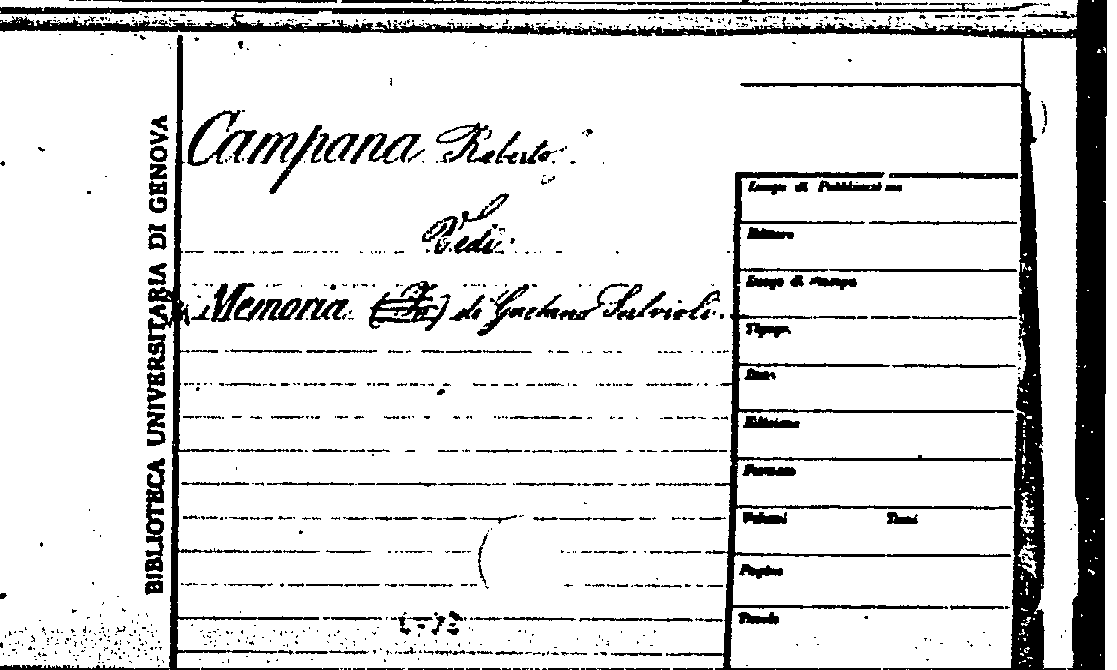 BIBLIOTECA UNIVERSITARIA DI GENOVA
Campana Roberto
Vedi
Memoria (In) di Gaetano Salvioli.
Luogo di Pubblicazione
Editore
Luogo di stampa
Tipogr.
Data
Edizione
Formato
Volumi Tomi
Pagine
Tavole